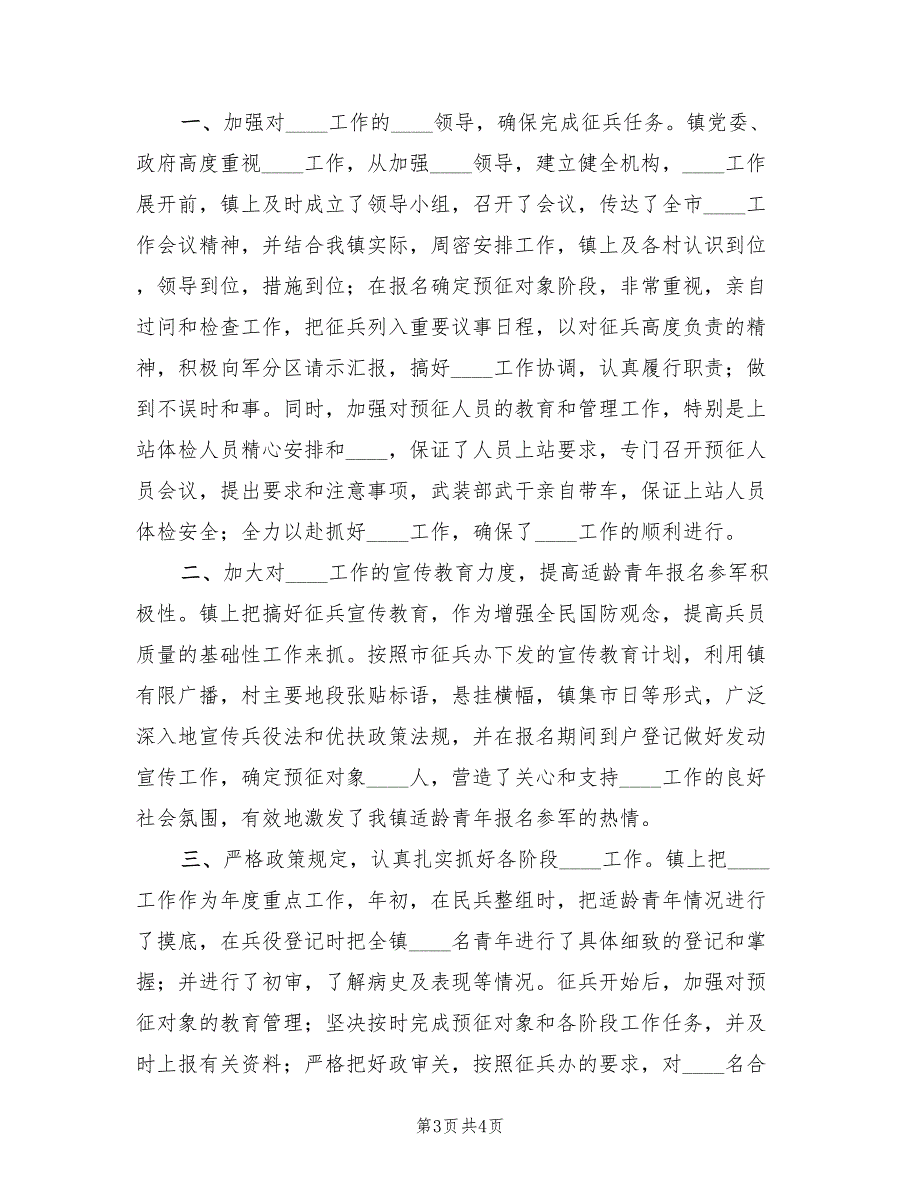 一、加强对____工作的____领导，确保完成征兵任务。镇党委、
政府高度重视____工作，从加强____领导，建立健全机构，____工作
展开前，镇上及时成立了领导小组，召开了会议，传达了全市____工
作会议精神，并结合我镇实际，周密安排工作，镇上及各村认识到位
，领导到位，措施到位；在报名确定预征对象阶段，非常重视，亲自
过问和检查工作，把征兵列入重要议事日程，以对征兵高度负责的精
神，积极向军分区请示汇报，搞好____工作协调，认真履行职责；做
到不误时和事。同时，加强对预征人员的教育和管理工作，特别是上
站体检人员精心安排和____，保证了人员上站要求，专门召开预征人
员会议，提出要求和注意事项，武装部武干亲自带车，保证上站人员
体检安全；全力以赴抓好____工作，确保了____工作的顺利进行。
二、加大对____工作的宣传教育力度，提高适龄青年报名参军积
极性。镇上把搞好征兵宣传教育，作为增强全民国防观念，提高兵员
质量的基础性工作来抓。按照市征兵办下发的宣传教育计划，利用镇
有限广播，村主要地段张贴标语，悬挂横幅，镇集市日等形式，广泛
深入地宣传兵役法和优扶政策法规，并在报名期间到户登记做好发动
宣传工作，确定预征对象____人，营造了关心和支持____工作的良好
社会氛围，有效地激发了我镇适龄青年报名参军的热情。
三、严格政策规定，认真扎实抓好各阶段____工作。镇上把____
工作作为年度重点工作，年初，在民兵整组时，把适龄青年情况进行
了摸底，在兵役登记时把全镇____名青年进行了具体细致的登记和掌
握；并进行了初审，了解病史及表现等情况。征兵开始后，加强对预
征对象的教育管理；坚决按时完成预征对象和各阶段工作任务，并及
时上报有关资料；严格把好政审关，按照征兵办的要求，对____名合
第3页共4页